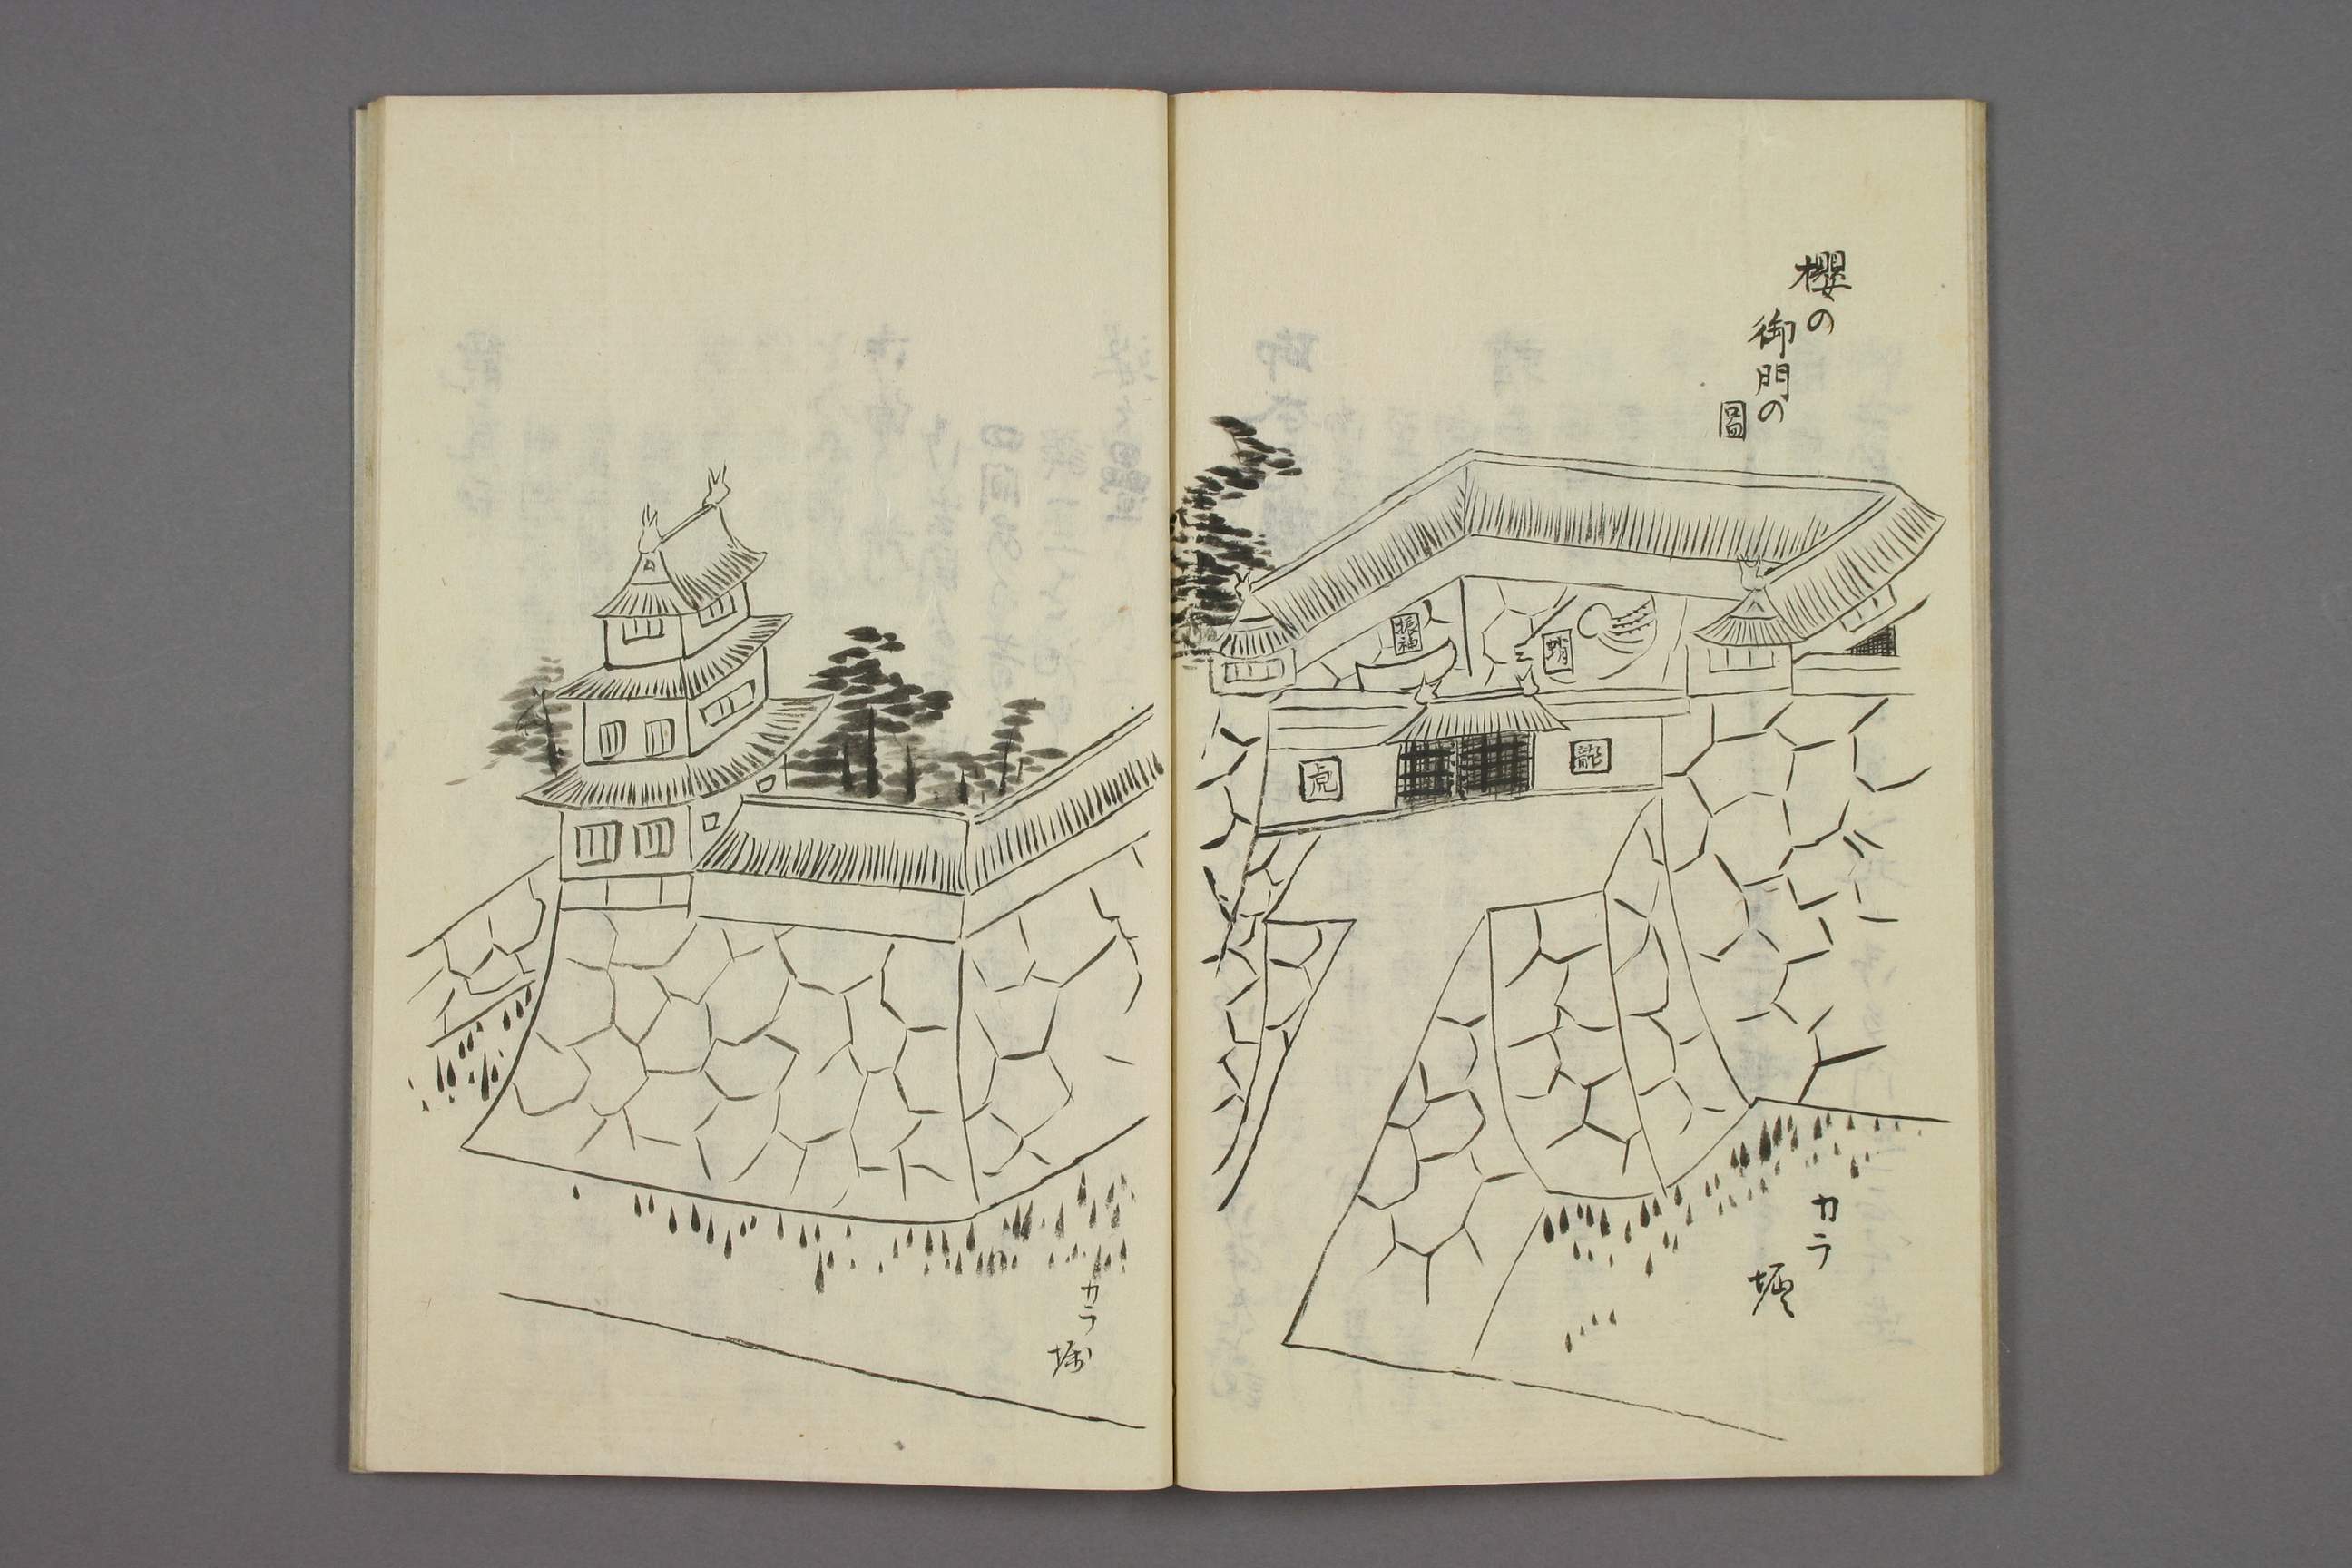 櫻の
御門の
圖
振袖
蛸
龍
虎
カラ
堀
カラ
堀